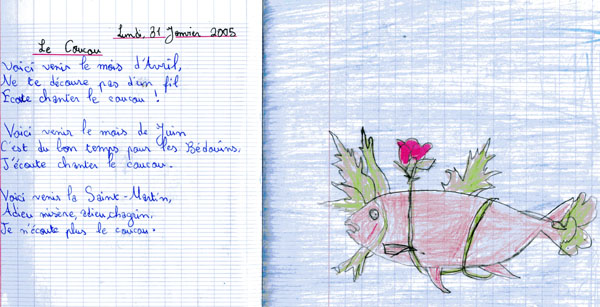 Lundi, 31 Janvier 2005
Le Coucou
Voici venir le mois d'Avril,
Ne te découvre pas d'un fil
Ecoute chanter le coucou !
Voici venir le mois de Juin
C'est du bon temps pour les Bédouins,
J'écoute chanter le coucou.
Voici venir la Saint-Martin,
Adieu misère, adieu chagrin,
Je n'écoute plus le coucou.